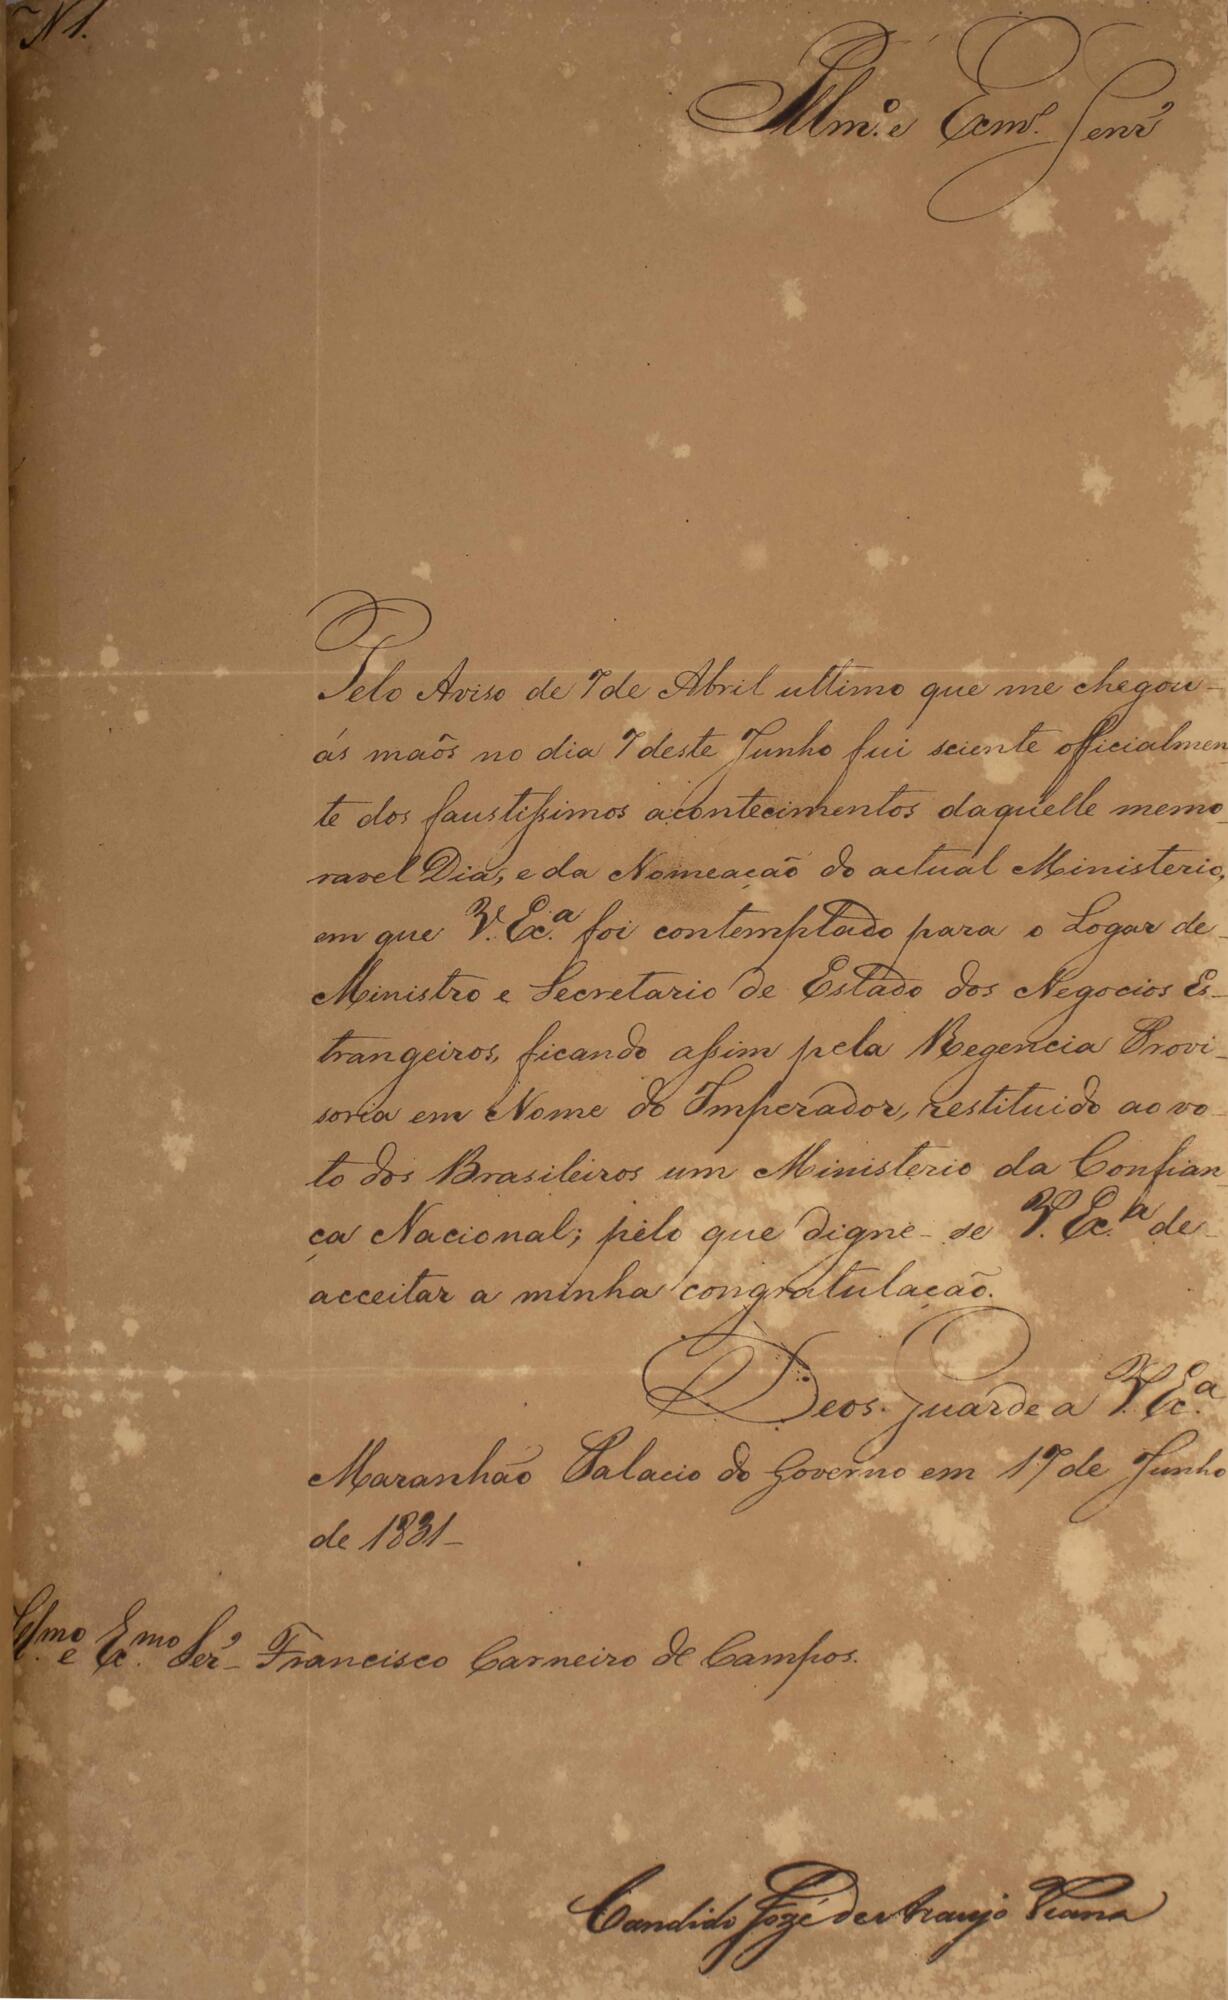 N 1.
Illm.º e Exmº. Senr.
Pelo Aviso de 7 de Abril ultimo que me chegou
ás maõs no dia 7 deste Junho fui sciente officialmen
te dos faustissimos acontecimentos daquelle memo
ravel Dia, e da Nomeação do actual Ministerio,
em que V. Exc.ª foi contemplado para o Logar de
Ministro e Secretario de Estado dos Negocios Es-
trangeiros, ficando assim pela Regencia Provi-
soria em Nome do Imperador, restituido ao vo
to dos Brasileiros um Ministerio da Confian
ça Nacional; pelo que digne-se V. Exc.ª de
acceitar a minha congratulação.
Deos Guarde a V. Exc.ª
Maranhão Palacio do Governo em 17 de Junho
de 1831_
Illmo. e Excmo. Ser. Francisco Carneiro de Campos.
Candido José de Araujo Vianna